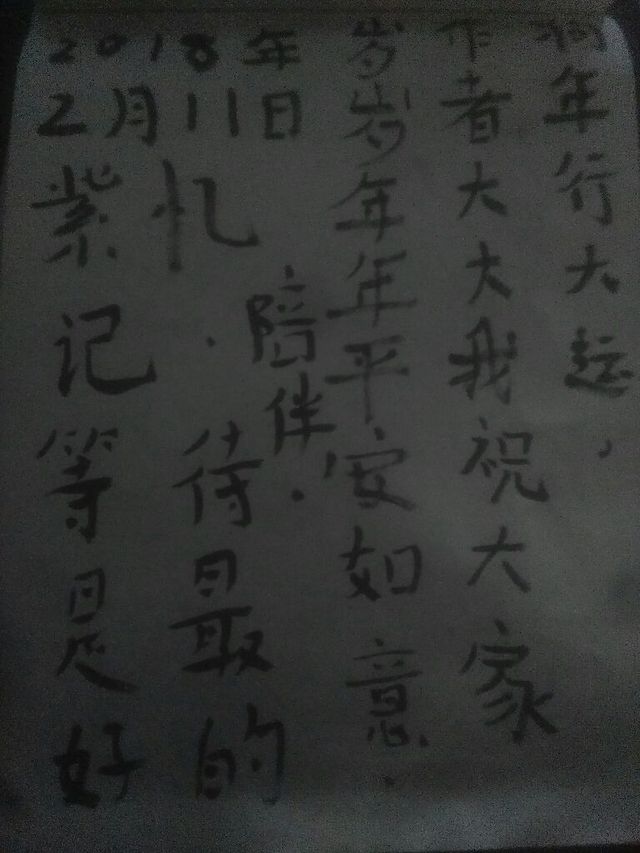 狗年行大运，
作者大大我祝大家
岁岁年年平安如意.
2018年
2月11日
紫忆
记.
等待
是最
好的
陪伴.